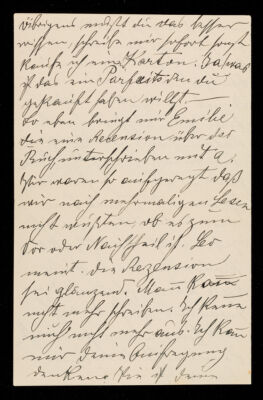 Übrigens mußt du das besser
wissen, schreibe mir sofort sonst
kaufe ich ein Karton. Ja was
ist das ein Parfait den du
gekauft haben willst.—
So eben bringt mir Emilie
die eine Recension über das
Buch unterschrieben mit a.
Wir waren so aufgeregt daß
wir nach mehrmaligen Lesen
nicht wußten, ob es zum
Vor oder Nachtheil ist. Leo
meint die Rezension
sei glänzend. Man kann
nicht mehr schreiben. Ich kenne
mich nicht mehr aus. Ich kann
mir deine Aufregung
denken. Wie ist deine